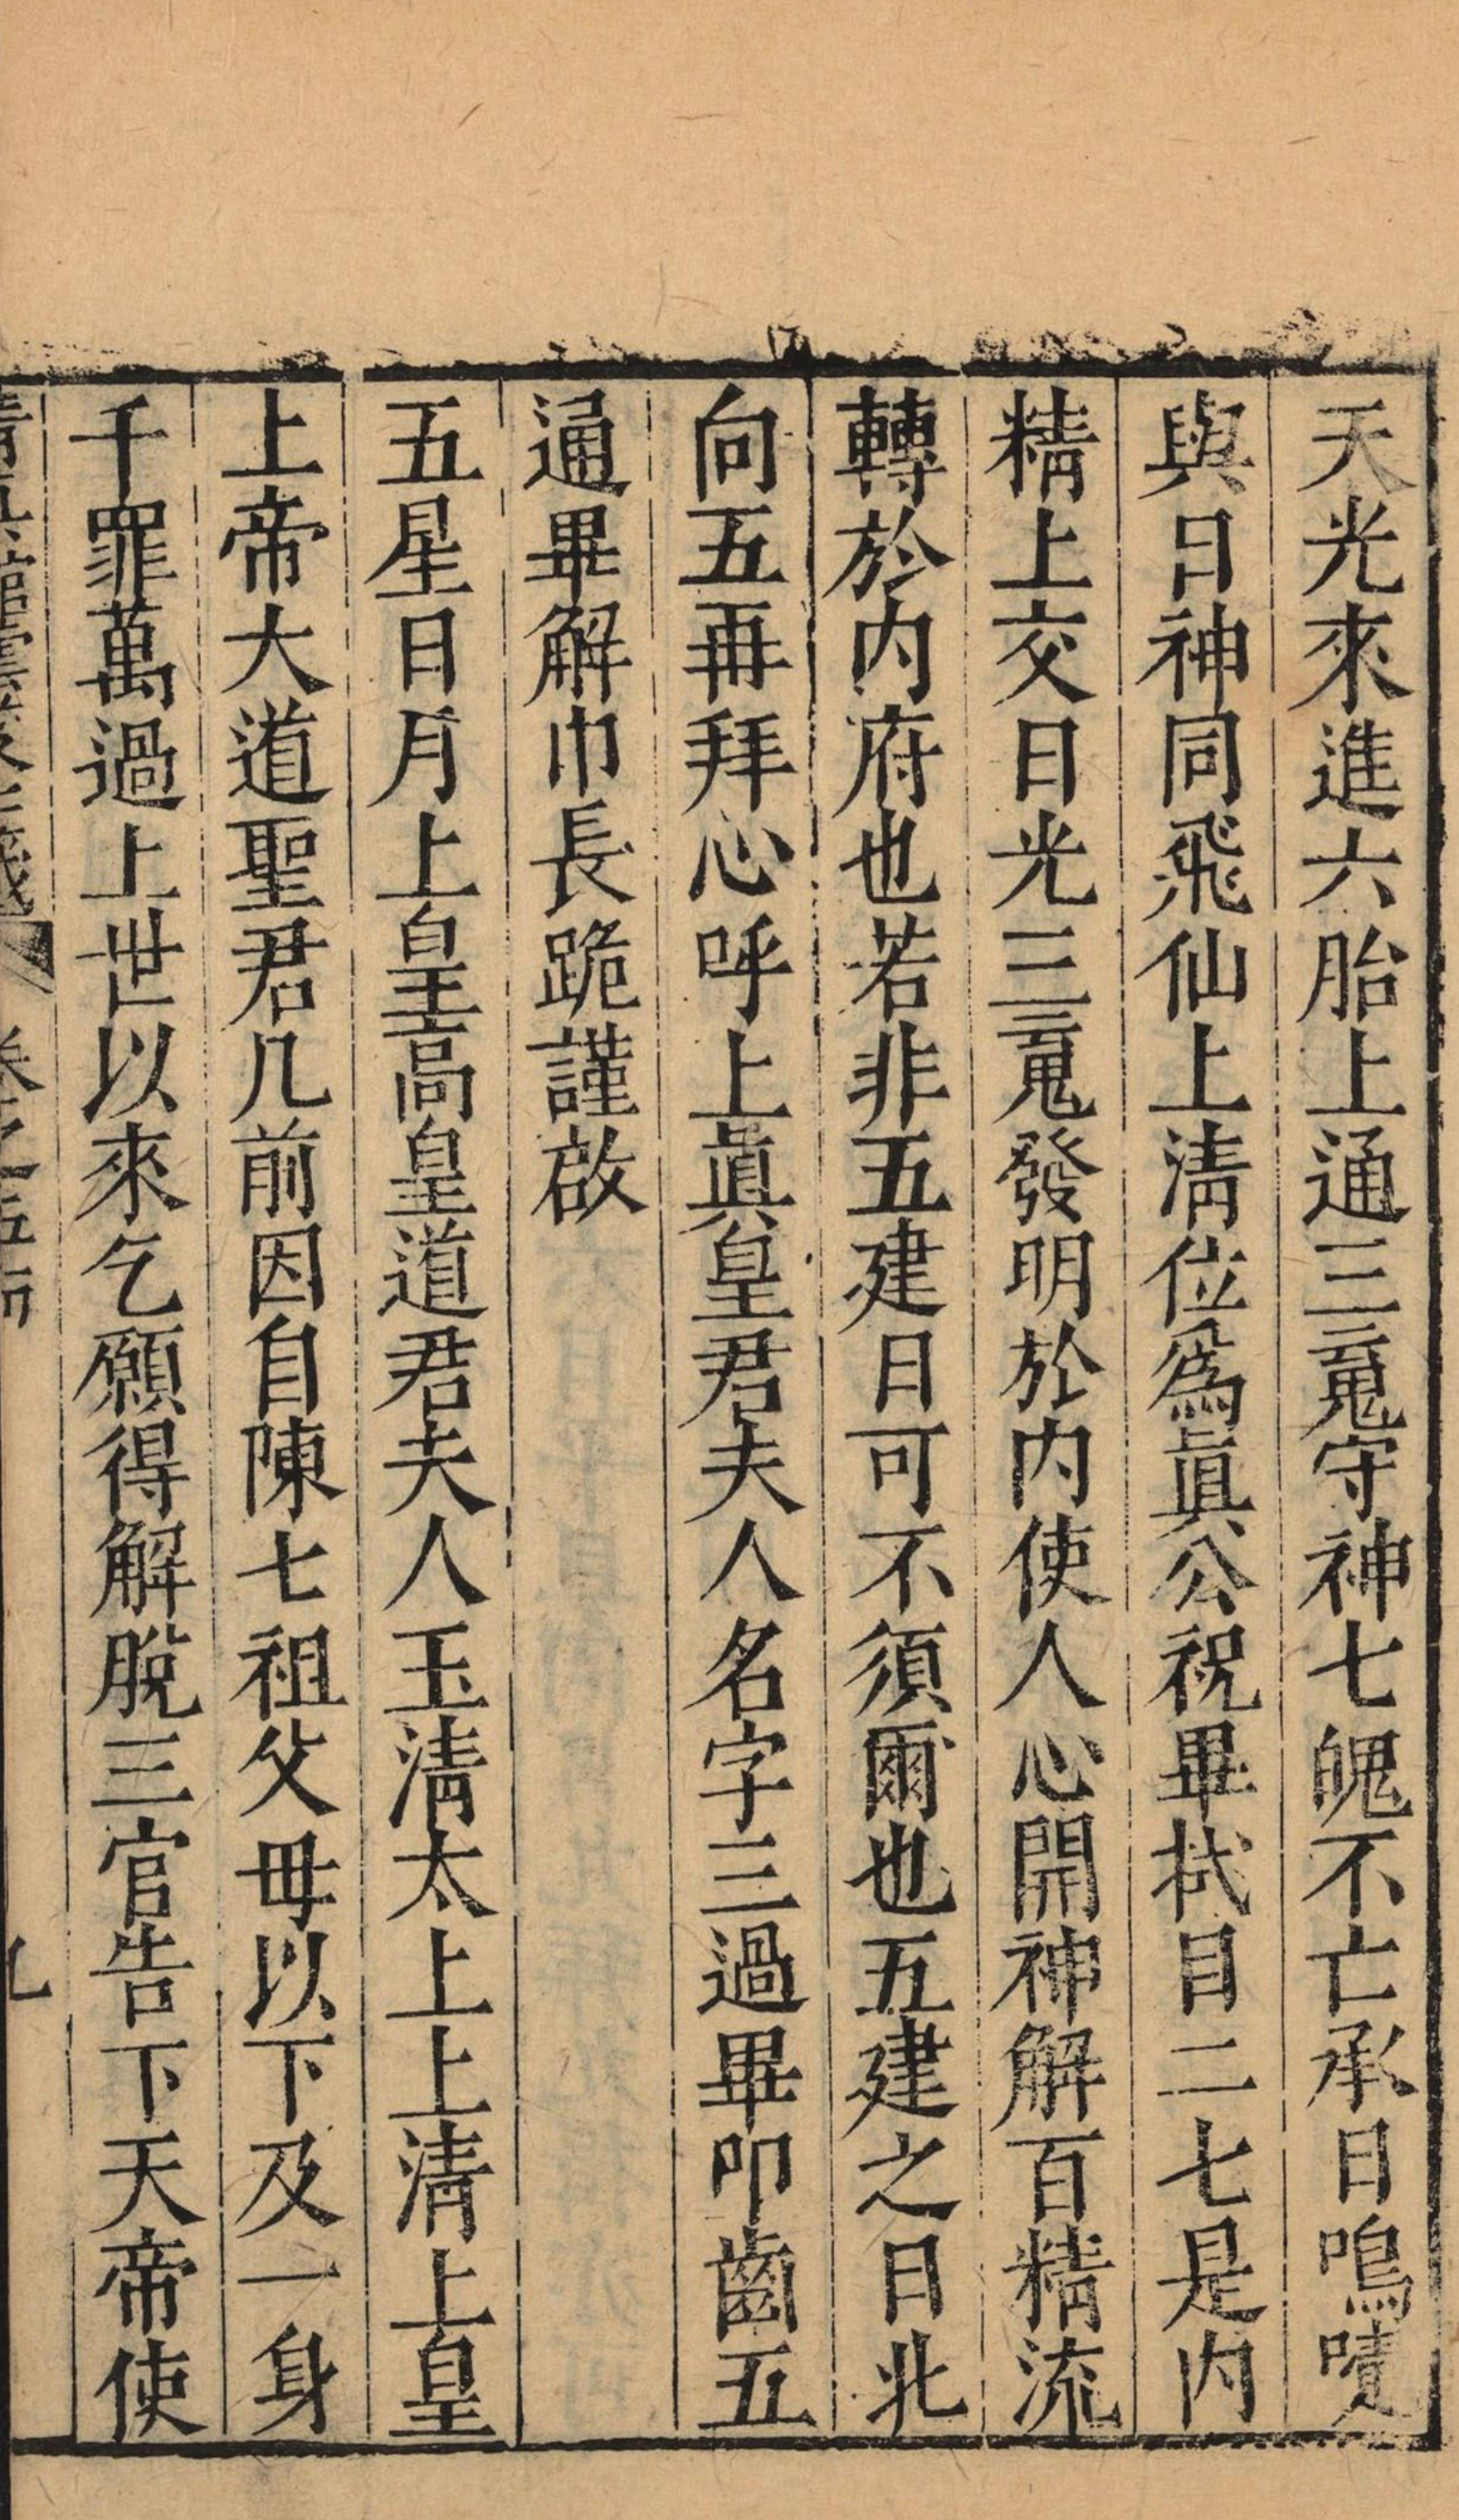 天光來進六胎上通三䰟守神七魄不亡承日鳴
與日神同飛仙上清位爲眞公祝畢拭目二七是内
精上交日光三䰟發明於内使人心開神解百精流
轉於内府也若非五建日可不須爾也五建之日北
向五再拜心呼上眞皇君夫人名字三過畢叩齒五
通畢解巾長跪謹啟
五星日月上皇高皇道君夫人玉清太上上清上皇
上帝大道聖君几前因自陳七祖父母以下及一身
千罪萬過上世以來乞願得解脫三官告下天帝使